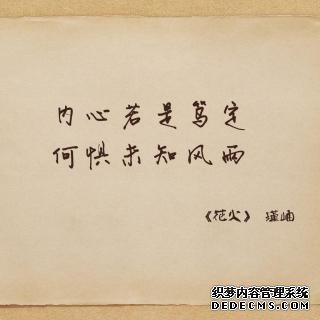 内心若是笃定
何惧未知风雨
《花火》 瑾崎
织梦内容管理系统
DEDECMS.COM